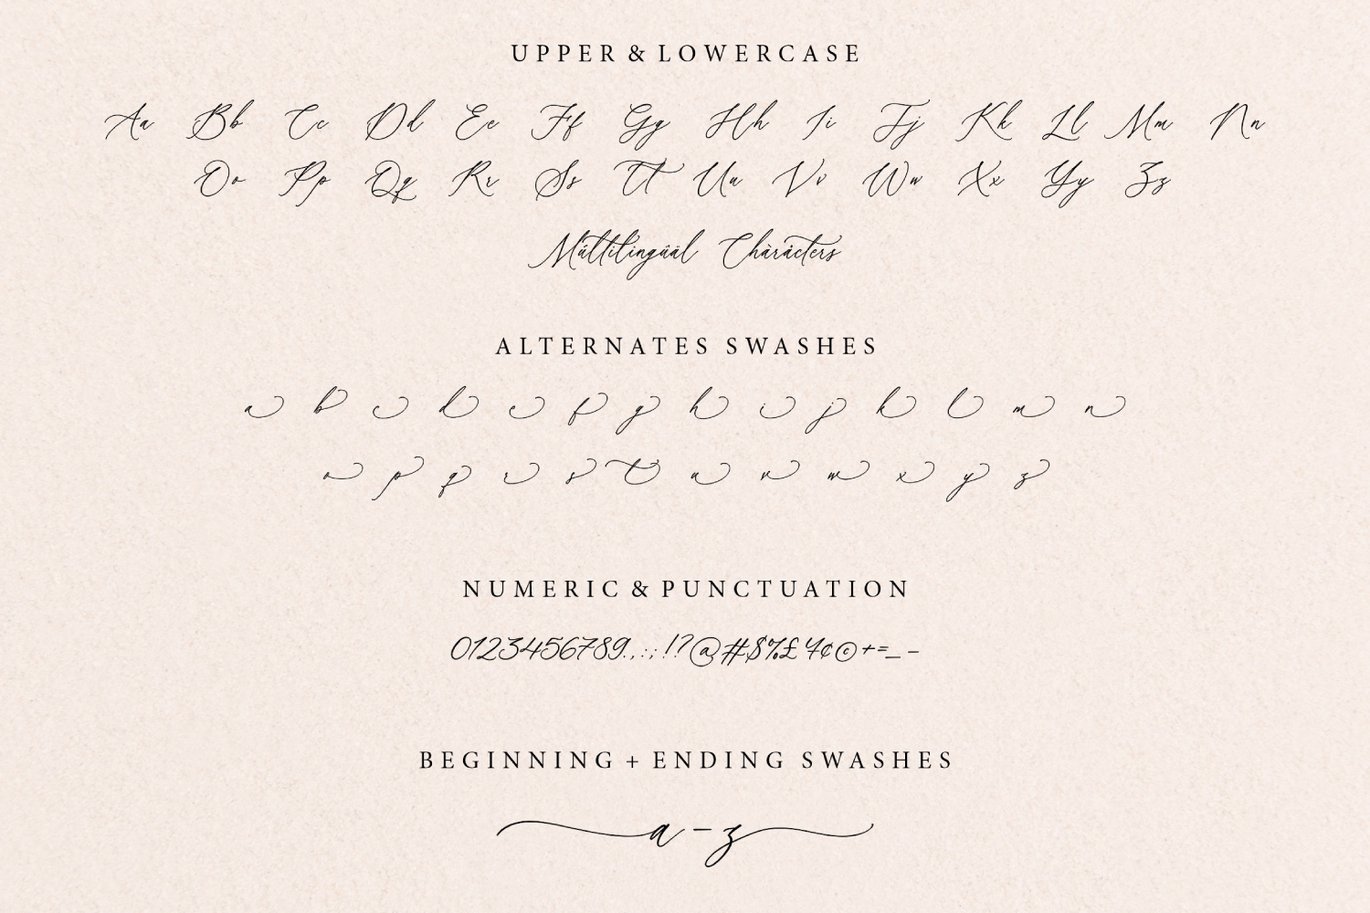 UPPER & LOWERCASE
Aa Bb Cc Dd Ee Ff Gg Hh Ii Jj Kk Ll Mm Nn
Oo Pp Qq Rr Ss Tt Uu Vv Ww Xx Yy Zz
Múltilingüâl Chàräcters
ALTERNATES SWASHES
a b c d e f g h i j k l m n
o p q r s t u v w x y z
NUMERIC & PUNCTUATION
0123456789.,:;!?@#$%£¥¢©+=_-
BEGINNING + ENDING SWASHES
a-z